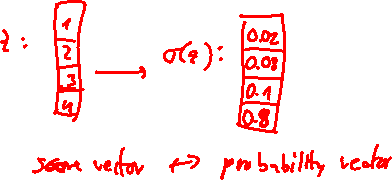 z :
1
2
3
4
→
σ(z) :
0.02
0.08
0.1
0.8
score vector ↔ probability vector